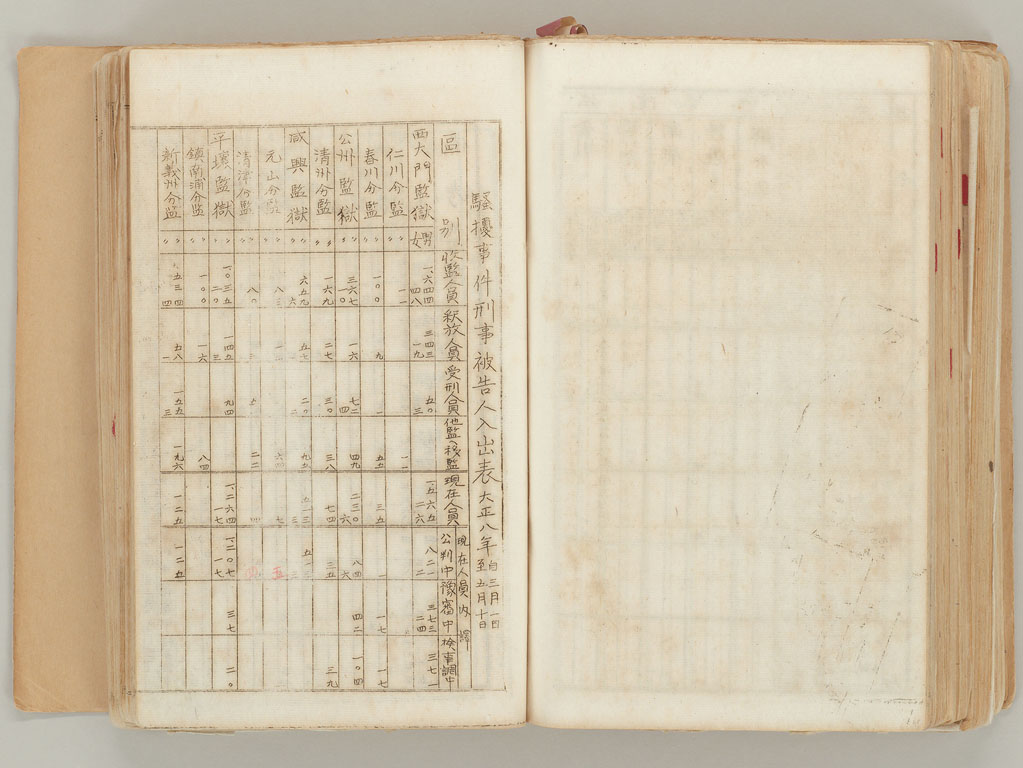 騷擾事件刑事被告人入出表 大正八年 自三月一日 至五月十日
區別 收監人員 釈放人員 受刑人員 他監ヘ移監 現在人員 現在人員內譯 公判中 豫審中 検事調中
西大門監獄 男 一、六四四 三四三 五〇 一、五六五 八二一 三七三 三七一
女 四八 一九 三 二六 二 二四
仁川分監 〃 一一 一一
〃
春川分監 〃 一〇〇 九 一 五五 三五 一 一七 一七
〃
公州監獄 〃 三六七 一六 七二 四九 二三〇 八四 四二 一〇四
〃 一〇 四 六 六
清州分監 〃 一六九 二七 三〇 三八 七四 三五 三九
〃
咸興監獄 〃 六五九 五七 二〇 九五
〃 六 二 三
元山分監 〃 八三 七 五
〃
清津分監 〃 八〇 三 二二 四
〃
平壤監獄 〃 一、〇三五 一四五 九四 一、二六四 一、二〇七 三七 二〇
〃 二〇 三 一七 一七
鎮南浦分監 〃 一〇〇 一六 八四
〃
新義州分監 〃 五三四 五八 一五五 一九六 一二五 一二五
〃 四 一 三